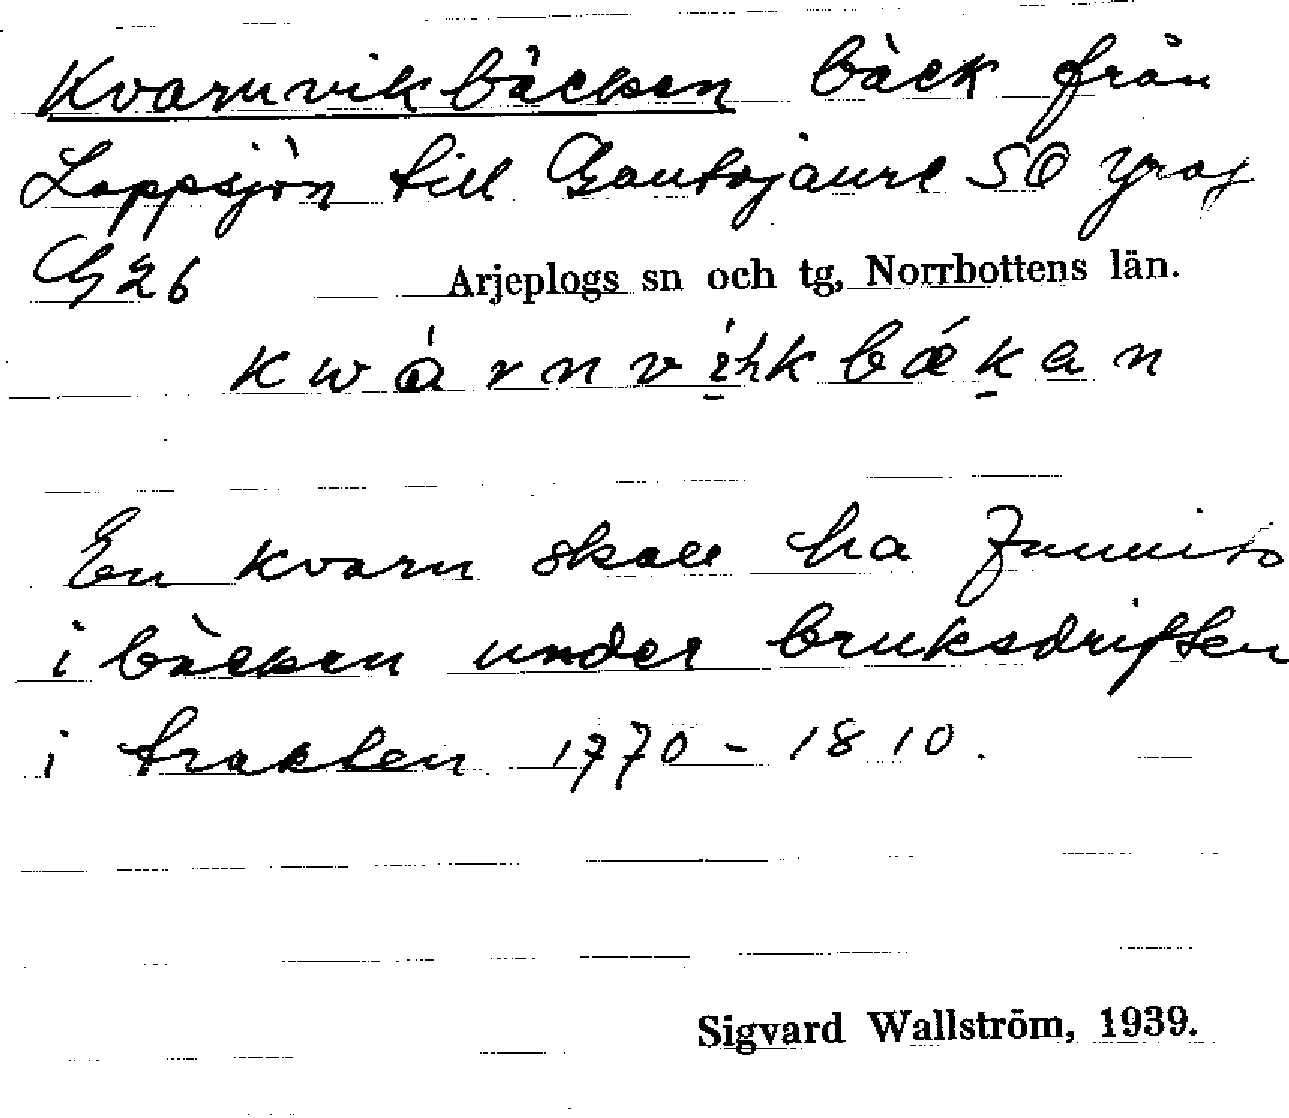 Kvarnvikbäcken bäck från
Loppsjön till Gautojaure SO
G26 Arjeplogs sn och tg, Norrbottens län.
kwárnvíhkbǽkan
En kvarn skall ha funnits
i bäcken under bruksdriften
i trakten 1770 - 1810.
Sigvard Wallström, 1939.